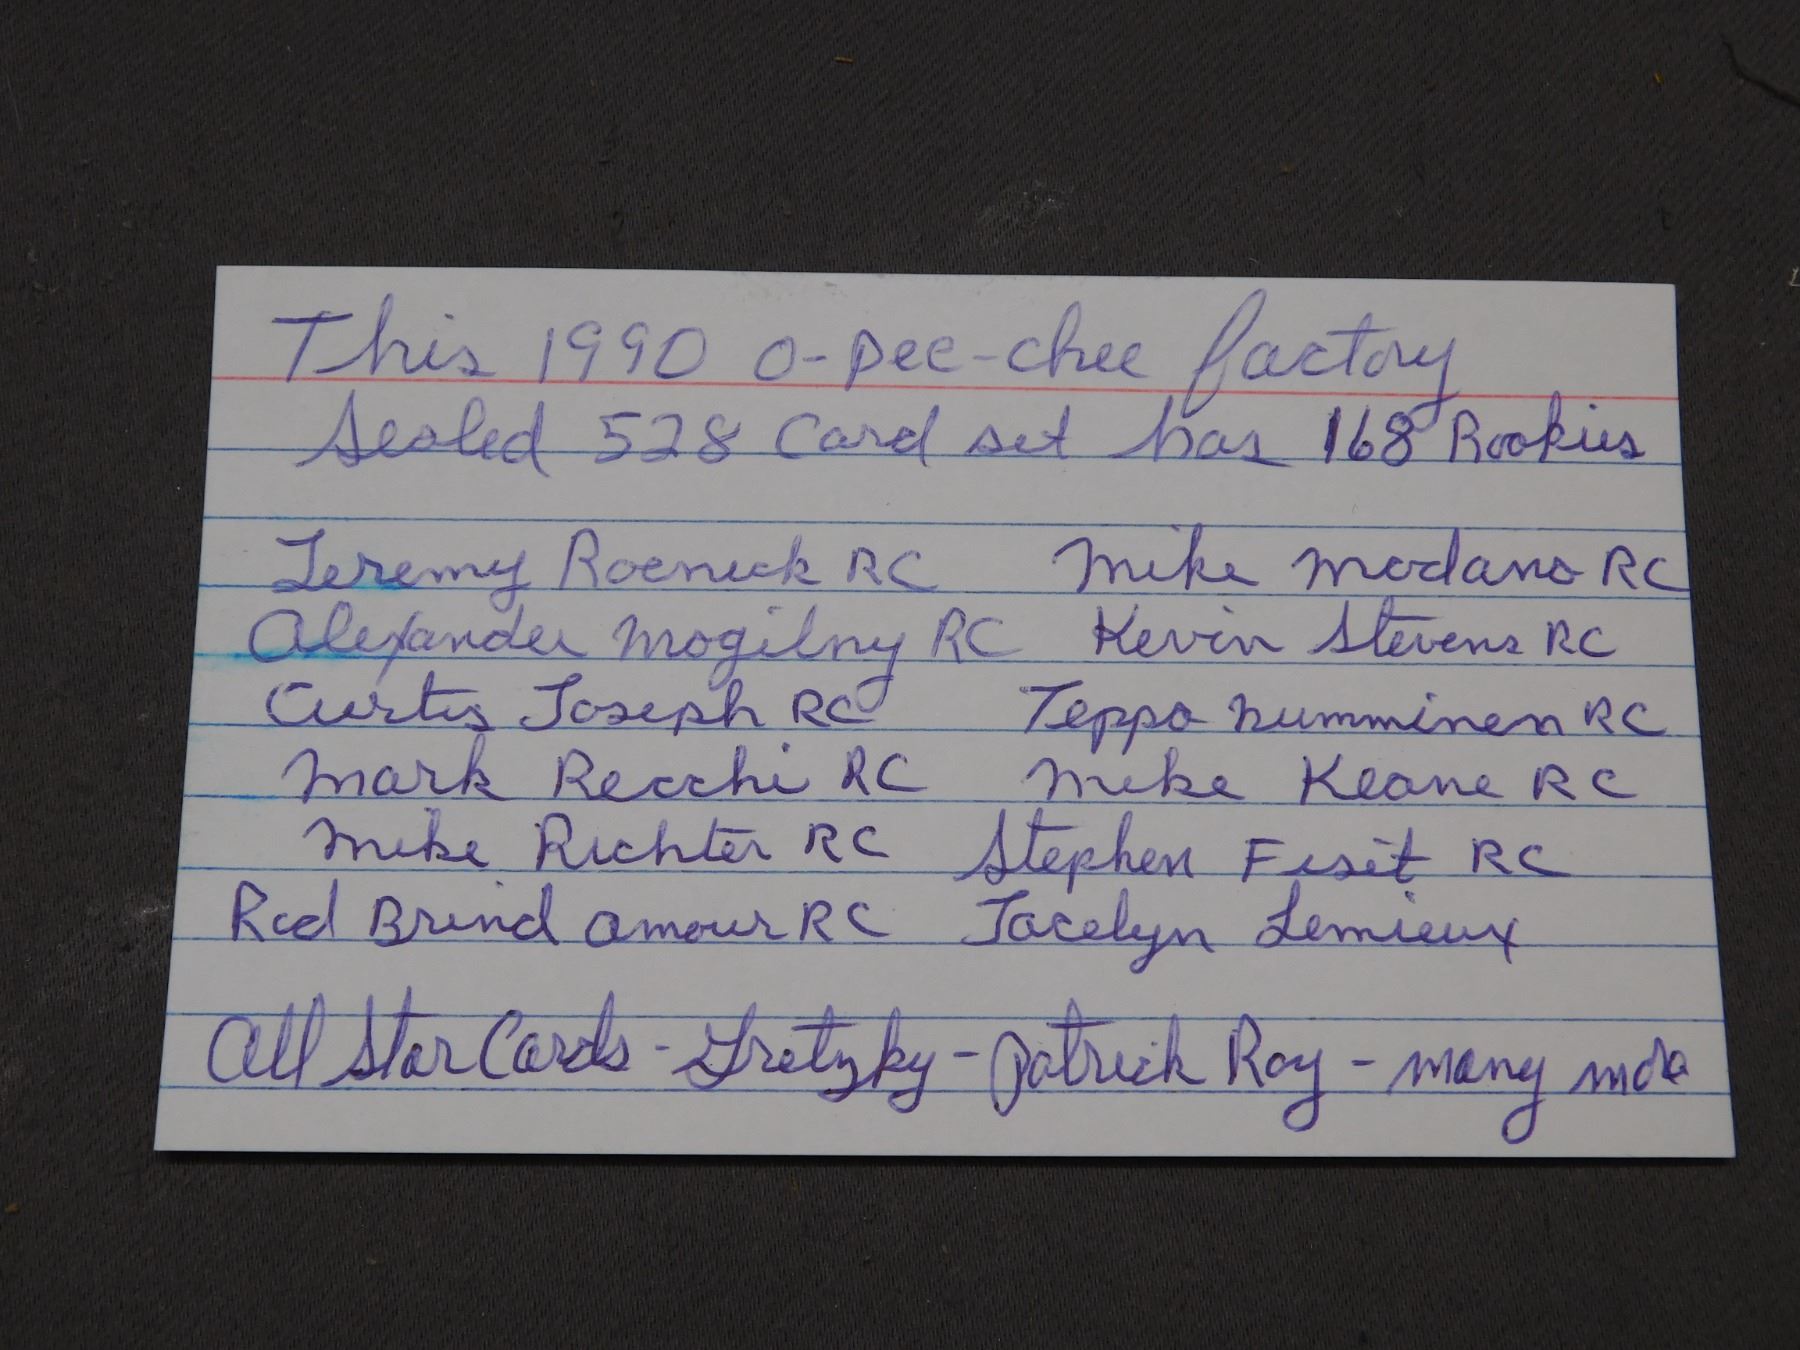 This 1990 O-Pee-Chee factory
Sealed 528 Card set has 168 Rookies
Jeremy Roenick RC Mike Modano RC
Alexander Mogilny RC Kevin Stevens RC
Curtis Joseph RC Teppo Numminen RC
Mark Recchi RC Mike Keane RC
Mike Richter RC Stephen Fiset RC
Rod Brind amour RC Jocelyn Lemieux
All Star Cards - Gretzky - Patrick Roy - many more